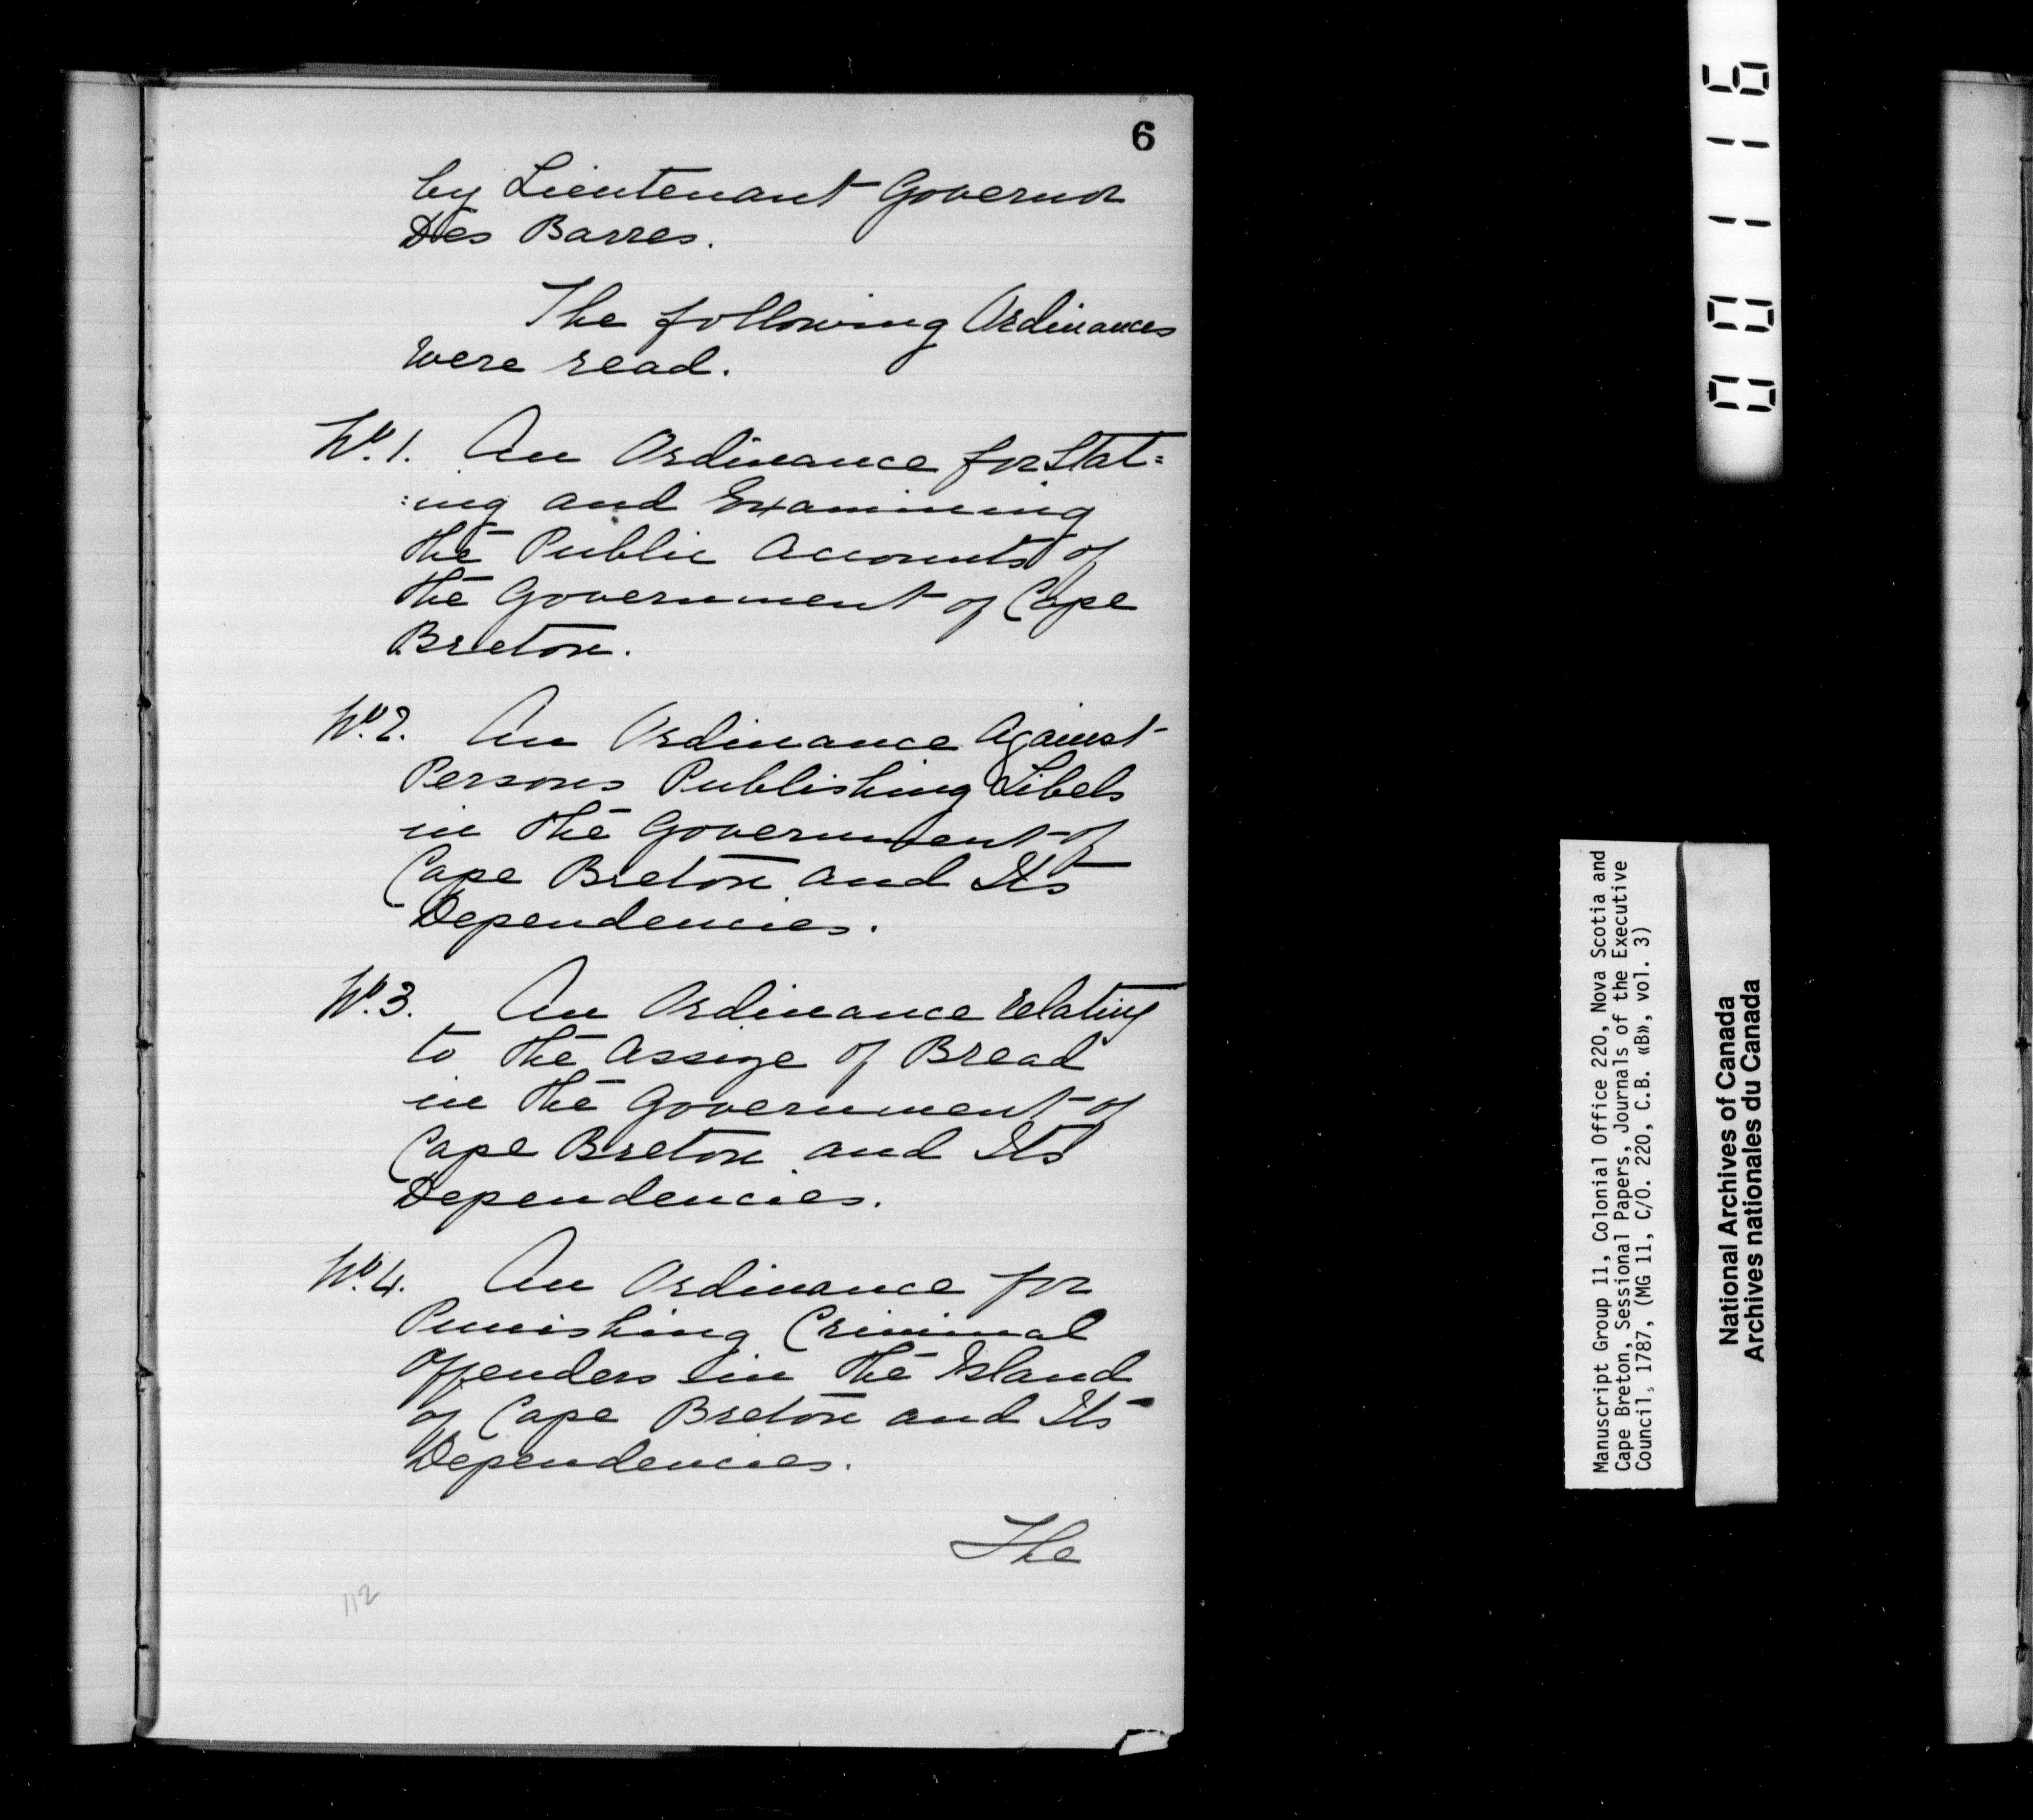 6
by Lieutenant Governor
Des Barres.
The following Ordinances
were read.
No. 1. An Ordinance for Stat=
=ing and Examining
the Public Accounts of
the Government of Cape
Breton.
No. 2. An Ordinance Against
Persons Publishing Libels
in the Government of
Cape Breton and Its
Dependencies.
No. 3. An Ordinance relating
to the Assize of Bread
in the Government of
Cape Breton and Its
Dependencies.
No. 4. An Ordinance for
Punishing Criminal
Offenders in the Island
of Cape Breton and Its
Dependencies.
The
112
001116
Manuscript Group 11, Colonial Office 220, Nova Scotia and
Cape Breton, Sessional Papers, Journals of the Executive
Council, 1787, (MG 11, C/O. 220, C.B. «B», vol. 3)
National Archives of Canada
Archives nationales du Canada